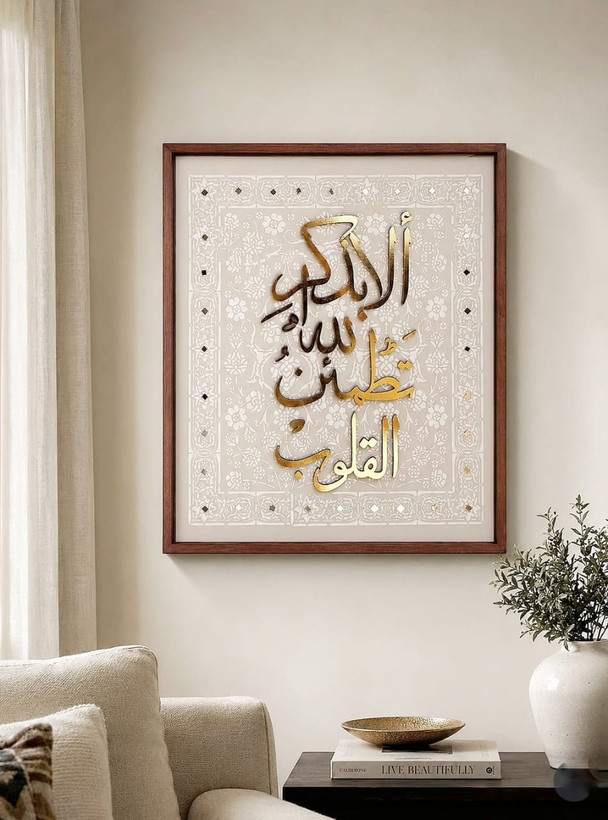 ألا بذكرِ
الله
تَطُمئنُ
القلوبْ
LIVE BEAUTIFULLY